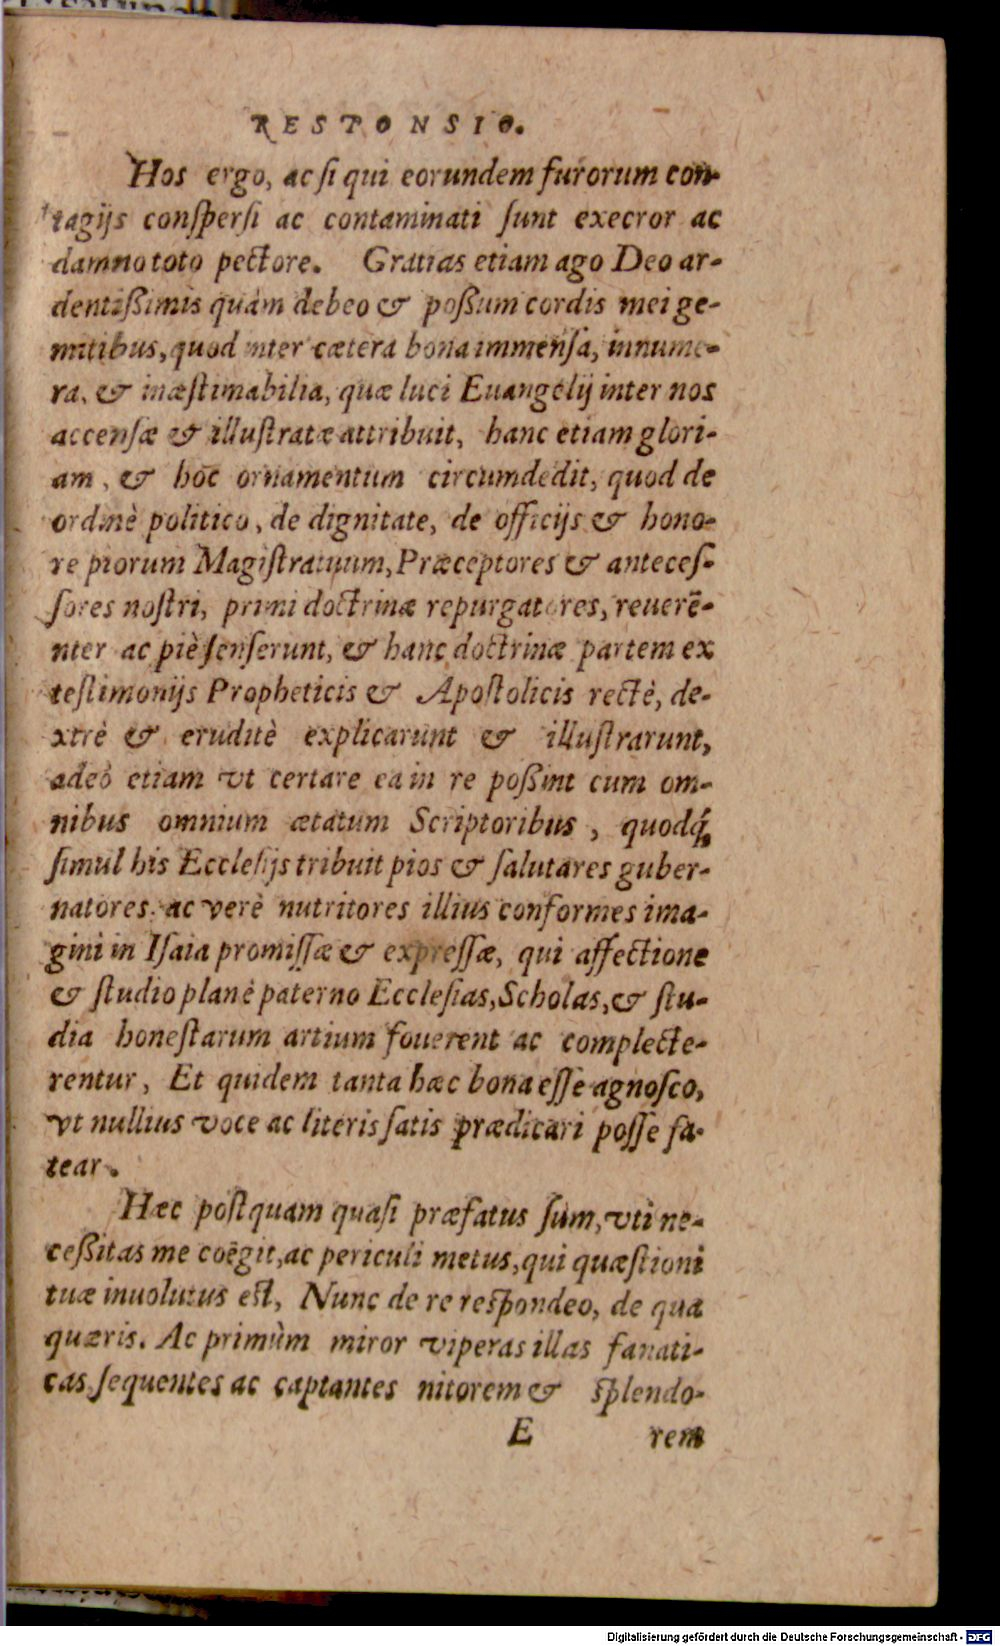 RESPONSIO.
Hos ergo, ac ſi qui eorundem furorum con-
tagijs conſperſi ac contaminati ſunt execror ac
damno toto pectore. Gratias etiam ago Deo ar-
dentißimis quàm debeo & poßum cordis mei ge-
mitibus, quod inter cætera bona immenſa, innume-
ra, & inæſtimabilia, quæ luci Euangelij inter nos
accenſæ & illuſtratæ attribuit, hanc etiam glori-
am, & hoc ornamentum circumdedit, quod de
ordinè politico, de dignitate, de officijs & hono-
re piorum Magiſtratuum, Præceptores & anteceſ-
ſores noſtri, primi doctrinæ repurgatores, reuerē-
nter ac piè ſenſerunt, & hanc doctrinæ partem ex
teſtimonijs Propheticis & Apoſtolicis rectè, de-
xtrè & eruditè explicarunt & illuſtrarunt,
adeò etiam vt certare ea in re poßint cum om-
nibus omnium ætatum Scriptoribus, quodq́;
ſimul his Eccleſijs tribuit pios & ſalutares guber-
natores, ac verè nutritores illius conformes ima-
gini in Iſaia promiſſæ & expreſſæ, qui affectione
& ſtudio planè paterno Eccleſias, Scholas, & ſtu-
dia honeſtarum artium fouerent ac complecte-
rentur, Et quidem tanta hæc bona eſſe agnoſco,
vt nullius voce ac literis ſatis prædicari poſſe fa-
tear.
Hæc poſtquam quaſi præfatus ſum, vti ne-
ceßitas me coëgit, ac periculi metus, qui quæſtioni
tuæ inuolutus eſt, Nunc de re reſpondeo, de qua
quæris. Ac primùm miror viperas illas fanati-
cas, ſequentes ac captantes nitorem & ſplendo-
E rem
Digitalisierung gefördert durch die Deutsche Forschungsgemeinschaft - DFG